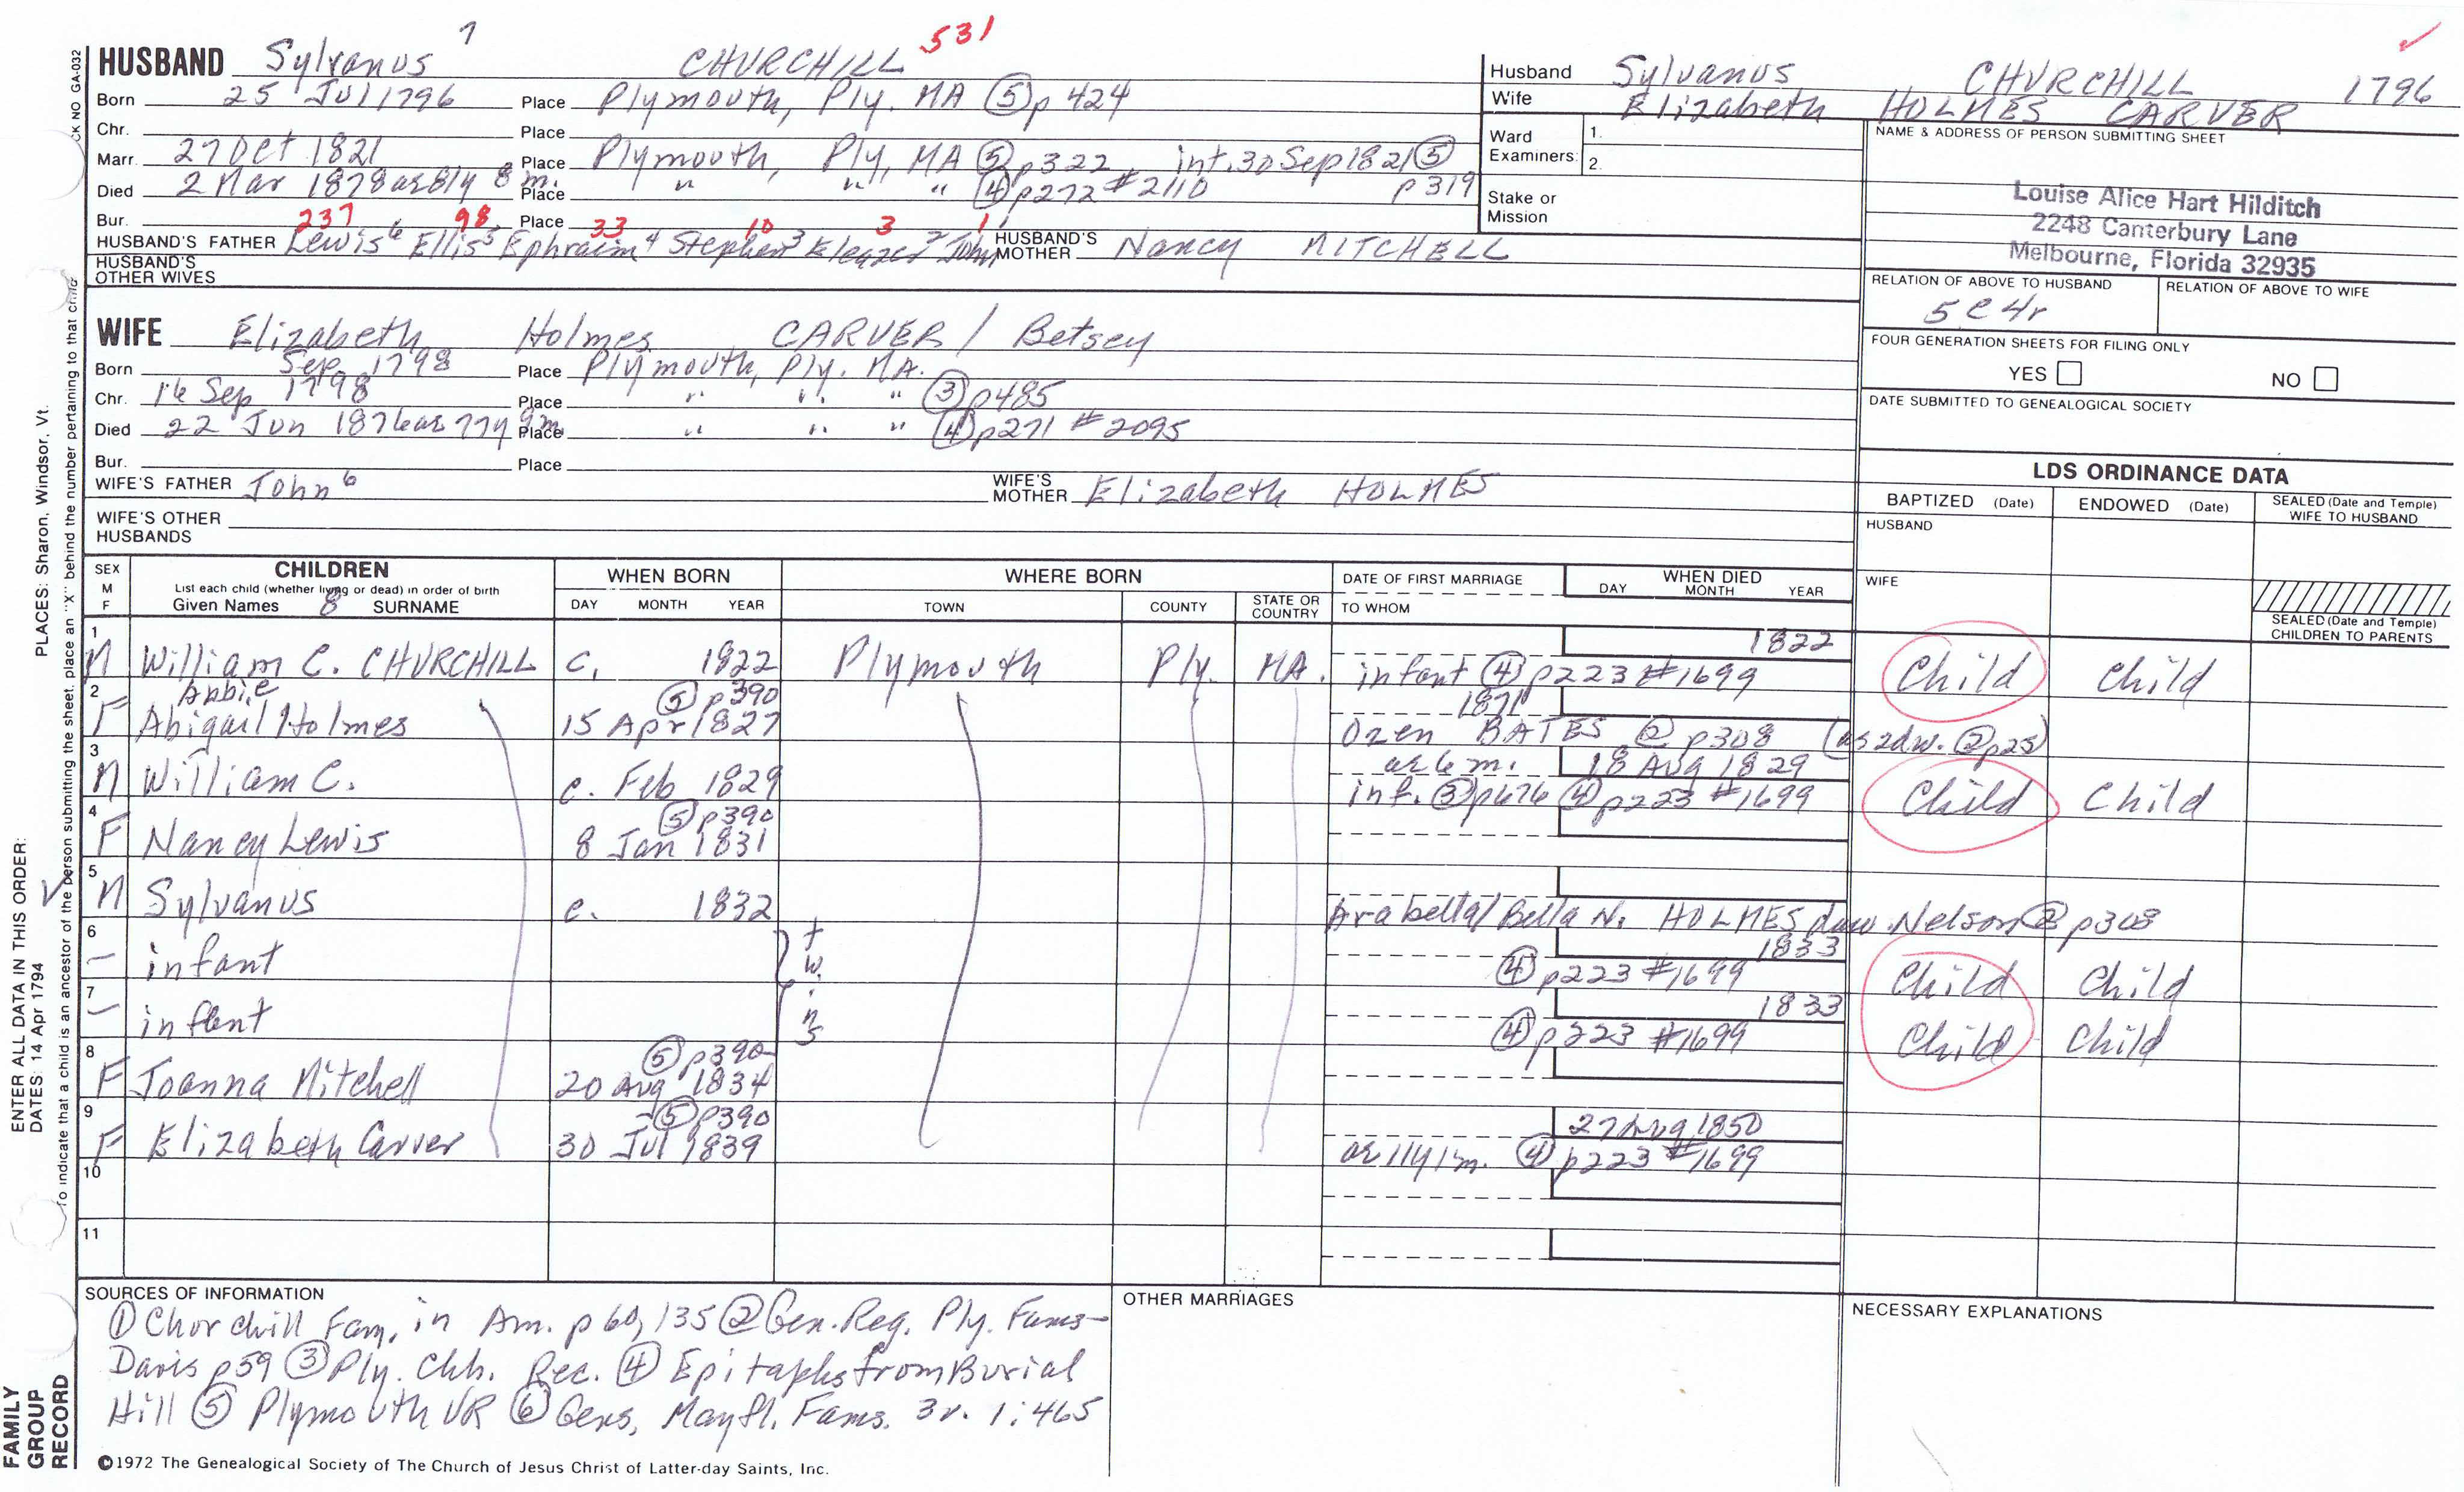 HUSBAND Sylvanus 7 CHURCHILL 531
Born 25 Jul 1796 Place Plymouth, Ply. MA ⑤ p 424
Chr. Place
Marr. 27 Oct 1821 Place Plymouth, Ply, MA ⑤ p322 int. 30 Sep 1821 ⑤ p319
Died 2 Mar 1878 ae 81y 8m. Place " " " ④ p272 #2110
Bur. Place
237 98 33 10 3 1
HUSBAND'S FATHER Lewis6 Ellis5 Ephraim4 Stephen3 Eleazer2 John1 HUSBAND'S MOTHER Nancy MITCHELL
HUSBAND'S OTHER WIVES
WIFE Elizabeth Holmes CARVER / Betsey
Born Sep 1798 Place Plymouth, Ply. MA.
Chr. 16 Sep 1798 Place " " " ③ p485
Died 22 Jun 1876 ae 77y 9m Place " " " ④ p271 #2095
Bur. Place
WIFE'S FATHER John6 WIFE'S MOTHER Elizabeth HOLMES
WIFE'S OTHER HUSBANDS
Husband Sylvanus CHURCHILL 1796
Wife Elizabeth HOLMES CARVER
Ward Examiners: 1. 2.
Stake or Mission
NAME & ADDRESS OF PERSON SUBMITTING SHEET
Louise Alice Hart Hilditch
2248 Canterbury Lane
Melbourne, Florida 32935
RELATION OF ABOVE TO HUSBAND RELATION OF ABOVE TO WIFE
5 C 4r
FOUR GENERATION SHEETS FOR FILING ONLY
YES NO
DATE SUBMITTED TO GENEALOGICAL SOCIETY
LDS ORDINANCE DATA
BAPTIZED (Date) ENDOWED (Date) SEALED (Date and Temple) WIFE TO HUSBAND
HUSBAND
WIFE
SEALED (Date and Temple) CHILDREN TO PARENTS
SEX M F CHILDREN WHEN BORN WHERE BORN DATE OF FIRST MARRIAGE WHEN DIED
List each child (whether living or dead) in order of birth
Given Names 8 SURNAME DAY MONTH YEAR TOWN COUNTY STATE OR COUNTRY TO WHOM DAY MONTH YEAR
1 M William C. CHURCHILL c. 1822 Plymouth Ply. MA. 1822
infant ④ p223 #1699 Child Child
2 F Abbie
Abigail Holmes ⑤ p390 15 Apr 1827 1871
Ozen BATES ② p308 (as 2d w. ② p25)
3 M William C. c. Feb 1829 ae 6 m. 18 Aug 1829
inf. ③ p676 ④ p223 #1699 Child Child
4 F Nancy Lewis ⑤ p390 8 Jan 1831
5 M Sylvanus c. 1832
Arabella/Bella N. HOLMES daw. Nelson ② p308
6 – infant twins 1833
④ p223 #1699 Child Child
7 – infant 1833
④ p223 #1699 Child Child
8 F Joanna Mitchell ⑤ p390 20 Aug 1834
9 F Elizabeth Carver ⑤ p390 30 Jul 1839 27 Aug 1850
ae 11y 1m. ④ p223 #1699
10
11
SOURCES OF INFORMATION
① Churchill Fam. in Am. p 60, 135 ② Gen. Reg. Ply. Fams-
Davis p59 ③ Ply. Chh. Rec. ④ Epitaphs from Burial
Hill ⑤ Plymouth VR ⑥ Gens, Mayfl. Fams. 3v. 1:465
OTHER MARRIAGES
NECESSARY EXPLANATIONS
©1972 The Genealogical Society of The Church of Jesus Christ of Latter-day Saints, Inc.
CK NO GA-032
PLACES: Sharon, Windsor, Vt.
To indicate that a child is an ancestor of the person submitting the sheet, place an "X" behind the number pertaining to that child
ENTER ALL DATA IN THIS ORDER:
DATES: 14 Apr 1794
FAMILY
GROUP
RECORD